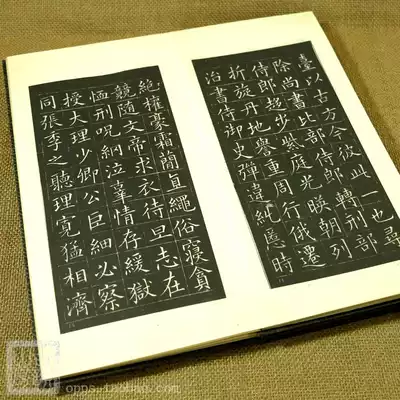 臺以古方今彼此一也尋
除尚書比部侍郎轉刑部
侍郎趍步紫庭光暎朝列
折旋丹地譽重周行俄遷
治書侍御史彈違糺慝時
絕權豪霜簡直繩俗寢貪
競隨文帝求衣待旦志在
恤刑呪網泣辜情存緩獄
授大理少卿公巨細必察
同張李之聽理寬猛相濟
opps.taobao.com